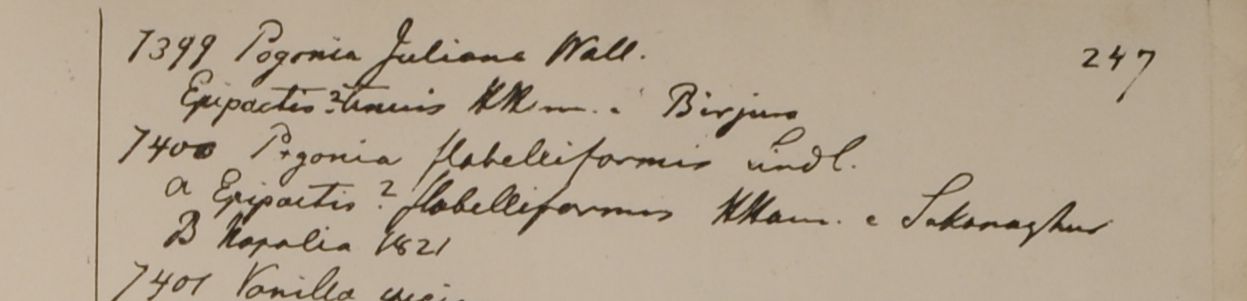 7399 Pogonia Juliana Wall. 247
Epipactis? tenuis HHam. e Birjura
7400 Pogonia flabelliformis Lindl.
a Epipactis? flabelliformis HHam. e Sakanaghur
B Napalia 1821
7401 Vanilla